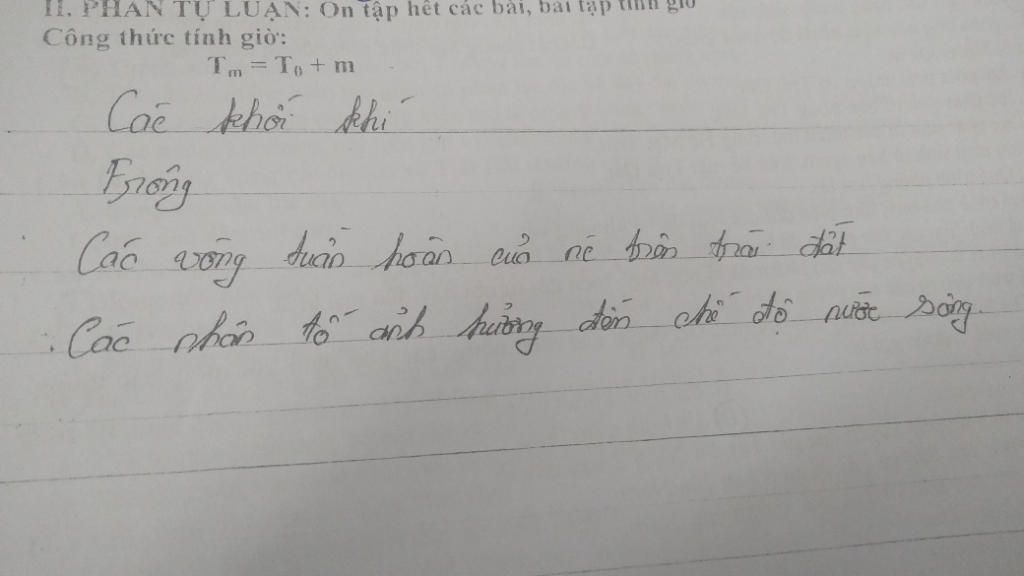 II. PHẦN TỰ LUẬN: Ôn tập hết các bài, bài tập tính giờ
Công thức tính giờ:
Tm = T0 + m
Các khối khí
Frông
Các vòng tuần hoàn của nc trên trái đất
Các nhân tố ảnh hưởng đến chế độ nước sông.